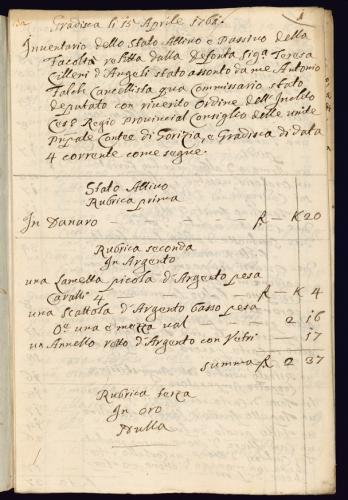 Gradisca li 15 Aprile 1762.
Inventario dello Stato Attivo e Passivo della
Facoltà relitta dalla defonta Sig.ª Teresa
Cilleni d'Angeli stato assonto da me Antonio
Falchi Cancellista qua Commissario stato
deputato con riverito Ordine dell'Inclito
Ces.º Regio Provincial Consiglio delle unite
Contee di Gorizia, e Gradisca di data
4 corrente come segue.
Stato Attivo
Rubrica prima
In Danaro — — — f — K 20
Rubrica seconda
In Argento
una Lametta picola d'Argento pesa
4 — — — f — K 4
una Scattola d'Argento basso pesa
una e mezza val — — 2 16
un Annello rotto d'Argento con Vetri 17
Summa f 2 37
Rubrica terza
In oro
Nulla